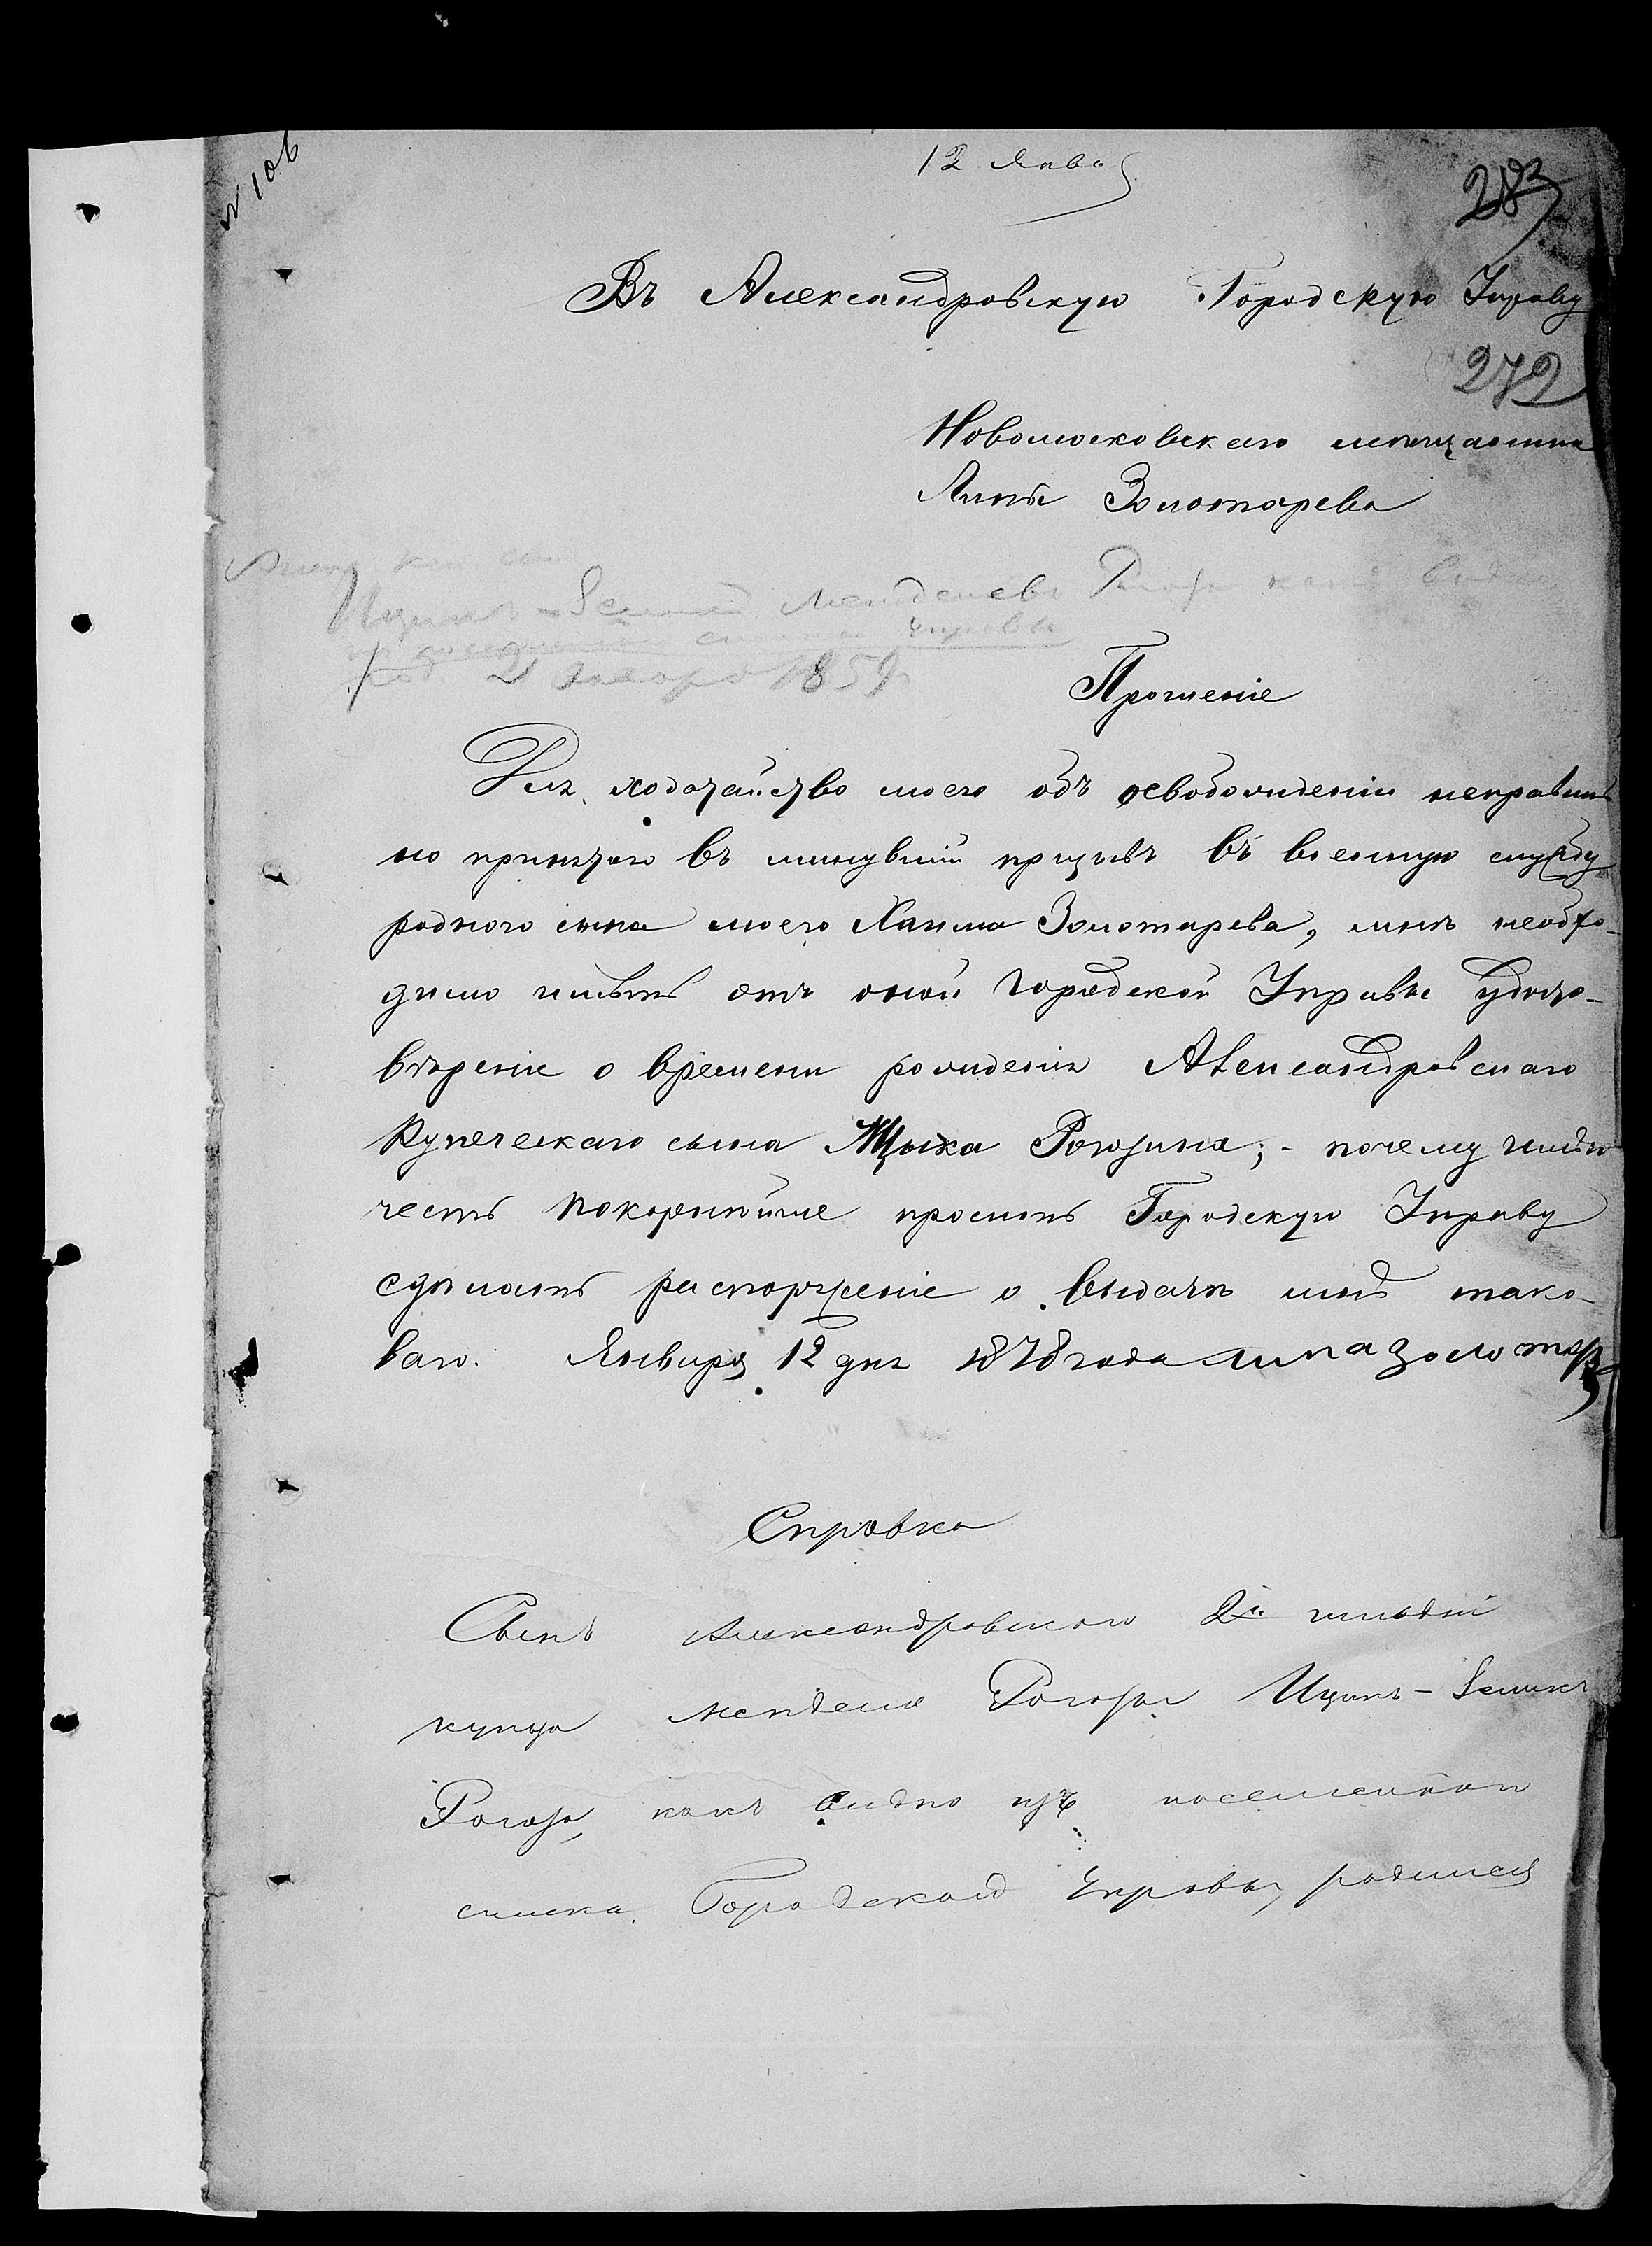 № 106
12 Янва
283
Въ Александровскую Городскую Управу
272
Новомосковскаго мещанина
Липы Золотарева
Ицикъ - Зелик Менделевъ Рогоз как вид
по посемейному списку Управы
род. 2 Января 1859
Прошеніе
Для ходатайство моего объ освобожденіи неправиль
но принятаго въ минувшій призывъ въ военную службу
родного сына моего Хаима Золотарева, мнѣ необхо-
димо имѣть отъ оной Городской Управы удосто-
вѣреніе о времени рожденія Александровскаго
Купеческаго сына Ицыка Рогозина; - почему имѣю
честь покорнейше просить Городскую Управу
сдѣлать распоряженіе о выдачѣ мнѣ тако-
ваго. Января 12 дня 1878 года Липа Золотар
Справка
Сынъ Александровскаго 2й гильдіи
купца Менделя Рогозы Ицикъ - Зеликъ
Рогоза, какъ видно изъ посемейнаго
списка Городской Управы, родился